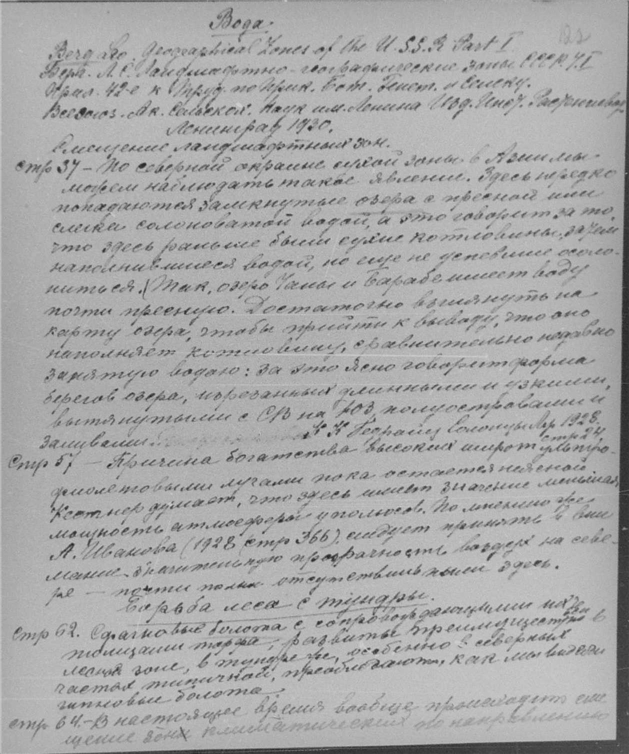 Вода.
Berg Leo Geographical Zones of the U.S.S.R Part I
Берг. Л.С. Ландшафтно-географические зоны СССР Ч.I
Прил. 42-е к Труд. по Прик. Бот. Генет. и Селек.
Всесоюз. Ак. Сельскох. Наук им. Ленина Изд. Инст. Растениевод.
Ленинград 1930.
Смещение ландшафтных зон.
стр 37 – По северной окраине сухой зоны в Азии мы
можем наблюдать такое явление. Здесь нередко
попадаются замкнутые озера с пресной или
слегка солоноватой водой, а это говорит за то,
что здесь раньше были сухие котловины, затем
наполнившиеся водой, но еще не успевшие осоло-
ниться. (Так, озеро Чаны в Барабе имеет воду
почти пресную. Достаточно взглянуть на
карту озера, чтобы прийти к выводу, что оно
наполняет котловину, сравнительно недавно
занятую водою: за это ясно говорит форма
берегов озера, изрезанных длинными и узкими,
вытянутыми с СВ на ЮЗ, полуостровами и
заливами 1928
Стр 57 – Причина богатства высоких широт ультра-
фиолетовыми лучами пока остается неясной
Кестнер думает, что здесь имеет значение меньшая
мощность атмосферы у полюсов. По мнению же
А. Иванова (1928 стр 366) следует принять в вни
мание значительную прозрачность воздух на севе-
ре – почти полн отсутствием пыли здесь.
Борьба леса с тундры.
стр 62. Сфагновые болота с сопровождающими их
толщами торфа, развиты преимуществен в
лесной зоне, в тундре же, особенно в северных
частях типичной, преобладают, как мы видели
гипновые болота.
стр 64.– В настоящее время вообще происходит сме
щение зон климатических по направлению